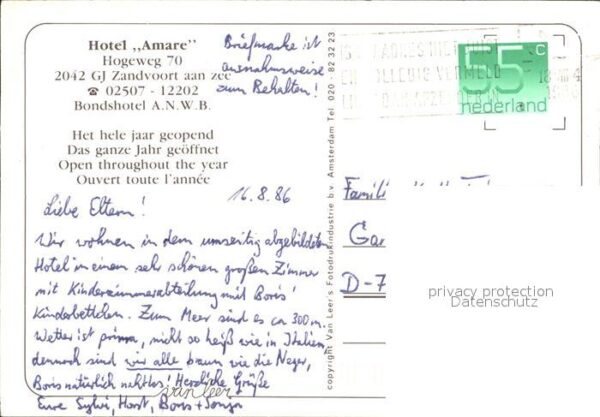 Hotel „Amare”
Hogeweg 70
2042 GJ Zandvoort aan zee
☎ 02507 - 12202
Bondshotel A.N.W.B.
Het hele jaar geopend
Das ganze Jahr geöffnet
Open throughout the year
Ouvert toute l'année
Briefmarke ist
ausnahmsweise
zum Behalten!
16.8.86
Liebe Eltern!
Wir wohnen in dem umseitig abgebildeten
Hotel in einem sehr schönen großen Zimmer
mit Kinderzimmerabteilung mit Boris'
Kinderbettchen. Zum Meer sind es ca 300 m.
Wetter ist prima, nicht so heiß wie in Italien,
dennoch sind wir alle braun wie die Neger,
Boris natürlich nahtlos! Herzliche Grüße
Eure Sylvi, Horst, Boris + Sonja
van leer
copyright Van Leer's Fotodrukindustrie b.v. Amsterdam Tel. 020 - 82 32 23
55 c
nederland
VOLLEDIG VERMELD
Famili
Gar
D-7
privacy protection
Datenschutz